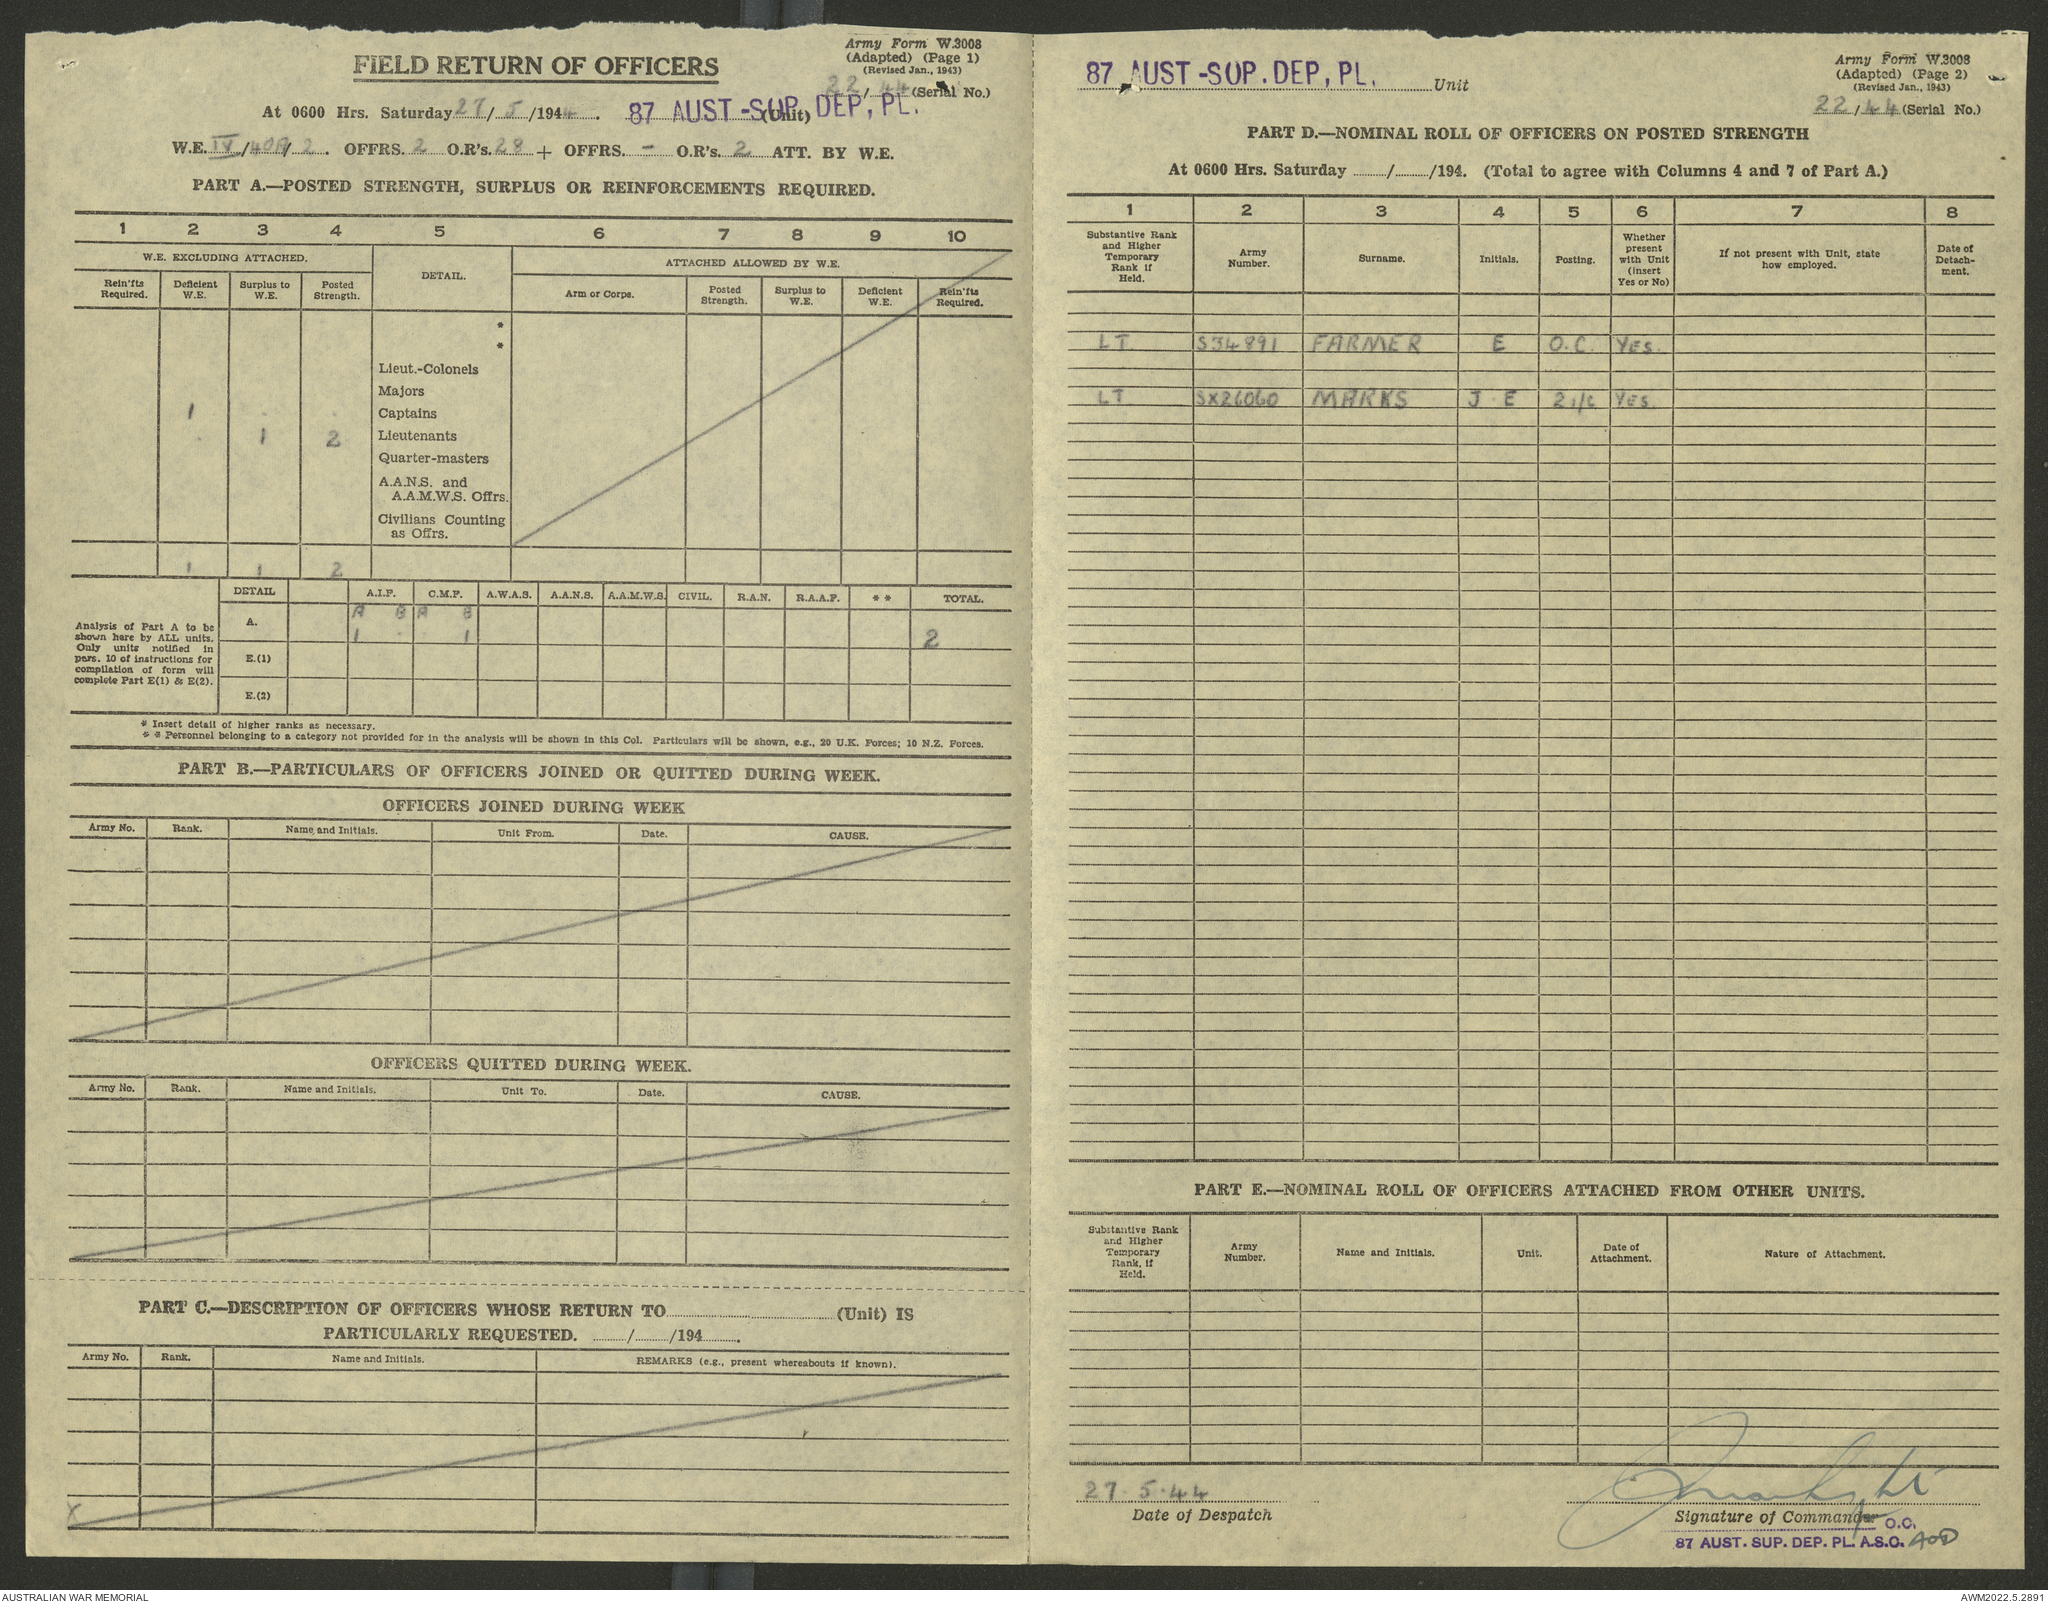 FIELD RETURN OF OFFICERS
Army Form W.3008
(Adapted) (Page 1)
(Revised Jan., 1943)
22/44 (Serial No.)
At 0600 Hrs. Saturday 27/5/1944. 87 AUST-SUP. DEP, PL. (Unit)
W.E. IV/40A/2. OFFRS. 2 O.R's. 28 + OFFRS. - O.R's. 2 ATT. BY W.E.
PART A.—POSTED STRENGTH, SURPLUS OR REINFORCEMENTS REQUIRED.
1 2 3 4 5 6 7 8 9 10
W.E. EXCLUDING ATTACHED. DETAIL. ATTACHED ALLOWED BY W.E.
Rein'fts Required. Deficient W.E. Surplus to W.E. Posted Strength. Arm or Corps. Posted Strength. Surplus to W.E. Deficient W.E. Rein'fts Required.
*
*
Lieut.-Colonels
Majors
1 Captains
1 2 Lieutenants
Quarter-masters
A.A.N.S. and
A.A.M.W.S. Offrs.
Civilians Counting
as Offrs.
1 1 2
DETAIL A.I.F. C.M.F. A.W.A.S. A.A.N.S. A.A.M.W.S. CIVIL. R.A.N. R.A.A.F. * * TOTAL.
Analysis of Part A to be
shown here by ALL units.
Only units notified in
para. 10 of instructions for
compilation of form will
complete Part E(1) & E(2).
A. A B A B
1 1 2
E.(1)
E.(2)
* Insert detail of higher ranks as necessary.
* * Personnel belonging to a category not provided for in the analysis will be shown in this Col. Particulars will be shown, e.g., 20 U.K. Forces; 10 N.Z. Forces.
PART B.—PARTICULARS OF OFFICERS JOINED OR QUITTED DURING WEEK.
OFFICERS JOINED DURING WEEK
Army No. Rank. Name and Initials. Unit From. Date. CAUSE.
OFFICERS QUITTED DURING WEEK.
Army No. Rank. Name and Initials. Unit To. Date. CAUSE.
PART C.—DESCRIPTION OF OFFICERS WHOSE RETURN TO (Unit) IS
PARTICULARLY REQUESTED. / /194 .
Army No. Rank. Name and Initials. REMARKS (e.g., present whereabouts if known).
X
87 AUST-SUP. DEP, PL. Unit
Army Form W.3008
(Adapted) (Page 2)
(Revised Jan., 1943)
22/44 (Serial No.)
PART D.—NOMINAL ROLL OF OFFICERS ON POSTED STRENGTH
At 0600 Hrs. Saturday / /194. (Total to agree with Columns 4 and 7 of Part A.)
1 2 3 4 5 6 7 8
Substantive Rank and Higher Temporary Rank if Held. Army Number. Surname. Initials. Posting. Whether present with Unit (insert Yes or No) If not present with Unit, state how employed. Date of Detach-ment.
LT S34891 FARMER E O.C. YES.
LT SX26060 MARKS J. E 2 i/c YES.
PART E.—NOMINAL ROLL OF OFFICERS ATTACHED FROM OTHER UNITS.
Substantive Rank and Higher Temporary Rank, if Held. Army Number. Name and Initials. Unit. Date of Attachment. Nature of Attachment.
27.5.44
Date of Despatch
Signature of Commander O.C.
87 AUST. SUP. DEP. PL. A.S.C.
AUSTRALIAN WAR MEMORIAL
AWM2022.5.2891